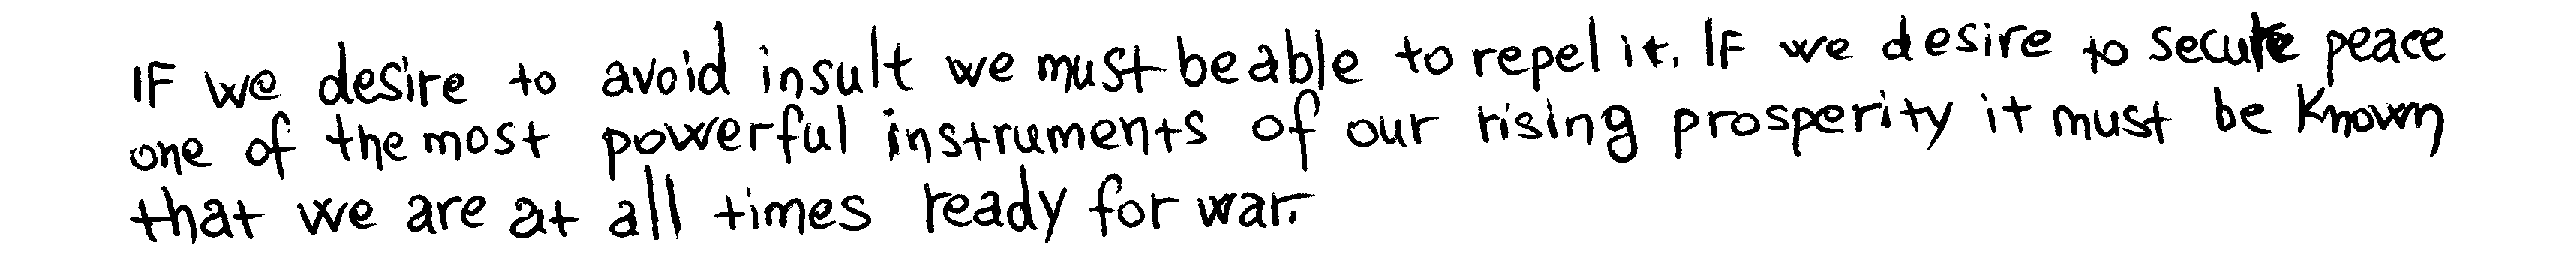 IF we desire to avoid insult we must be able to repel it. IF we desire to secure peace
one of the most powerful instruments of our rising prosperity it must be known
that we are at all times ready for war.